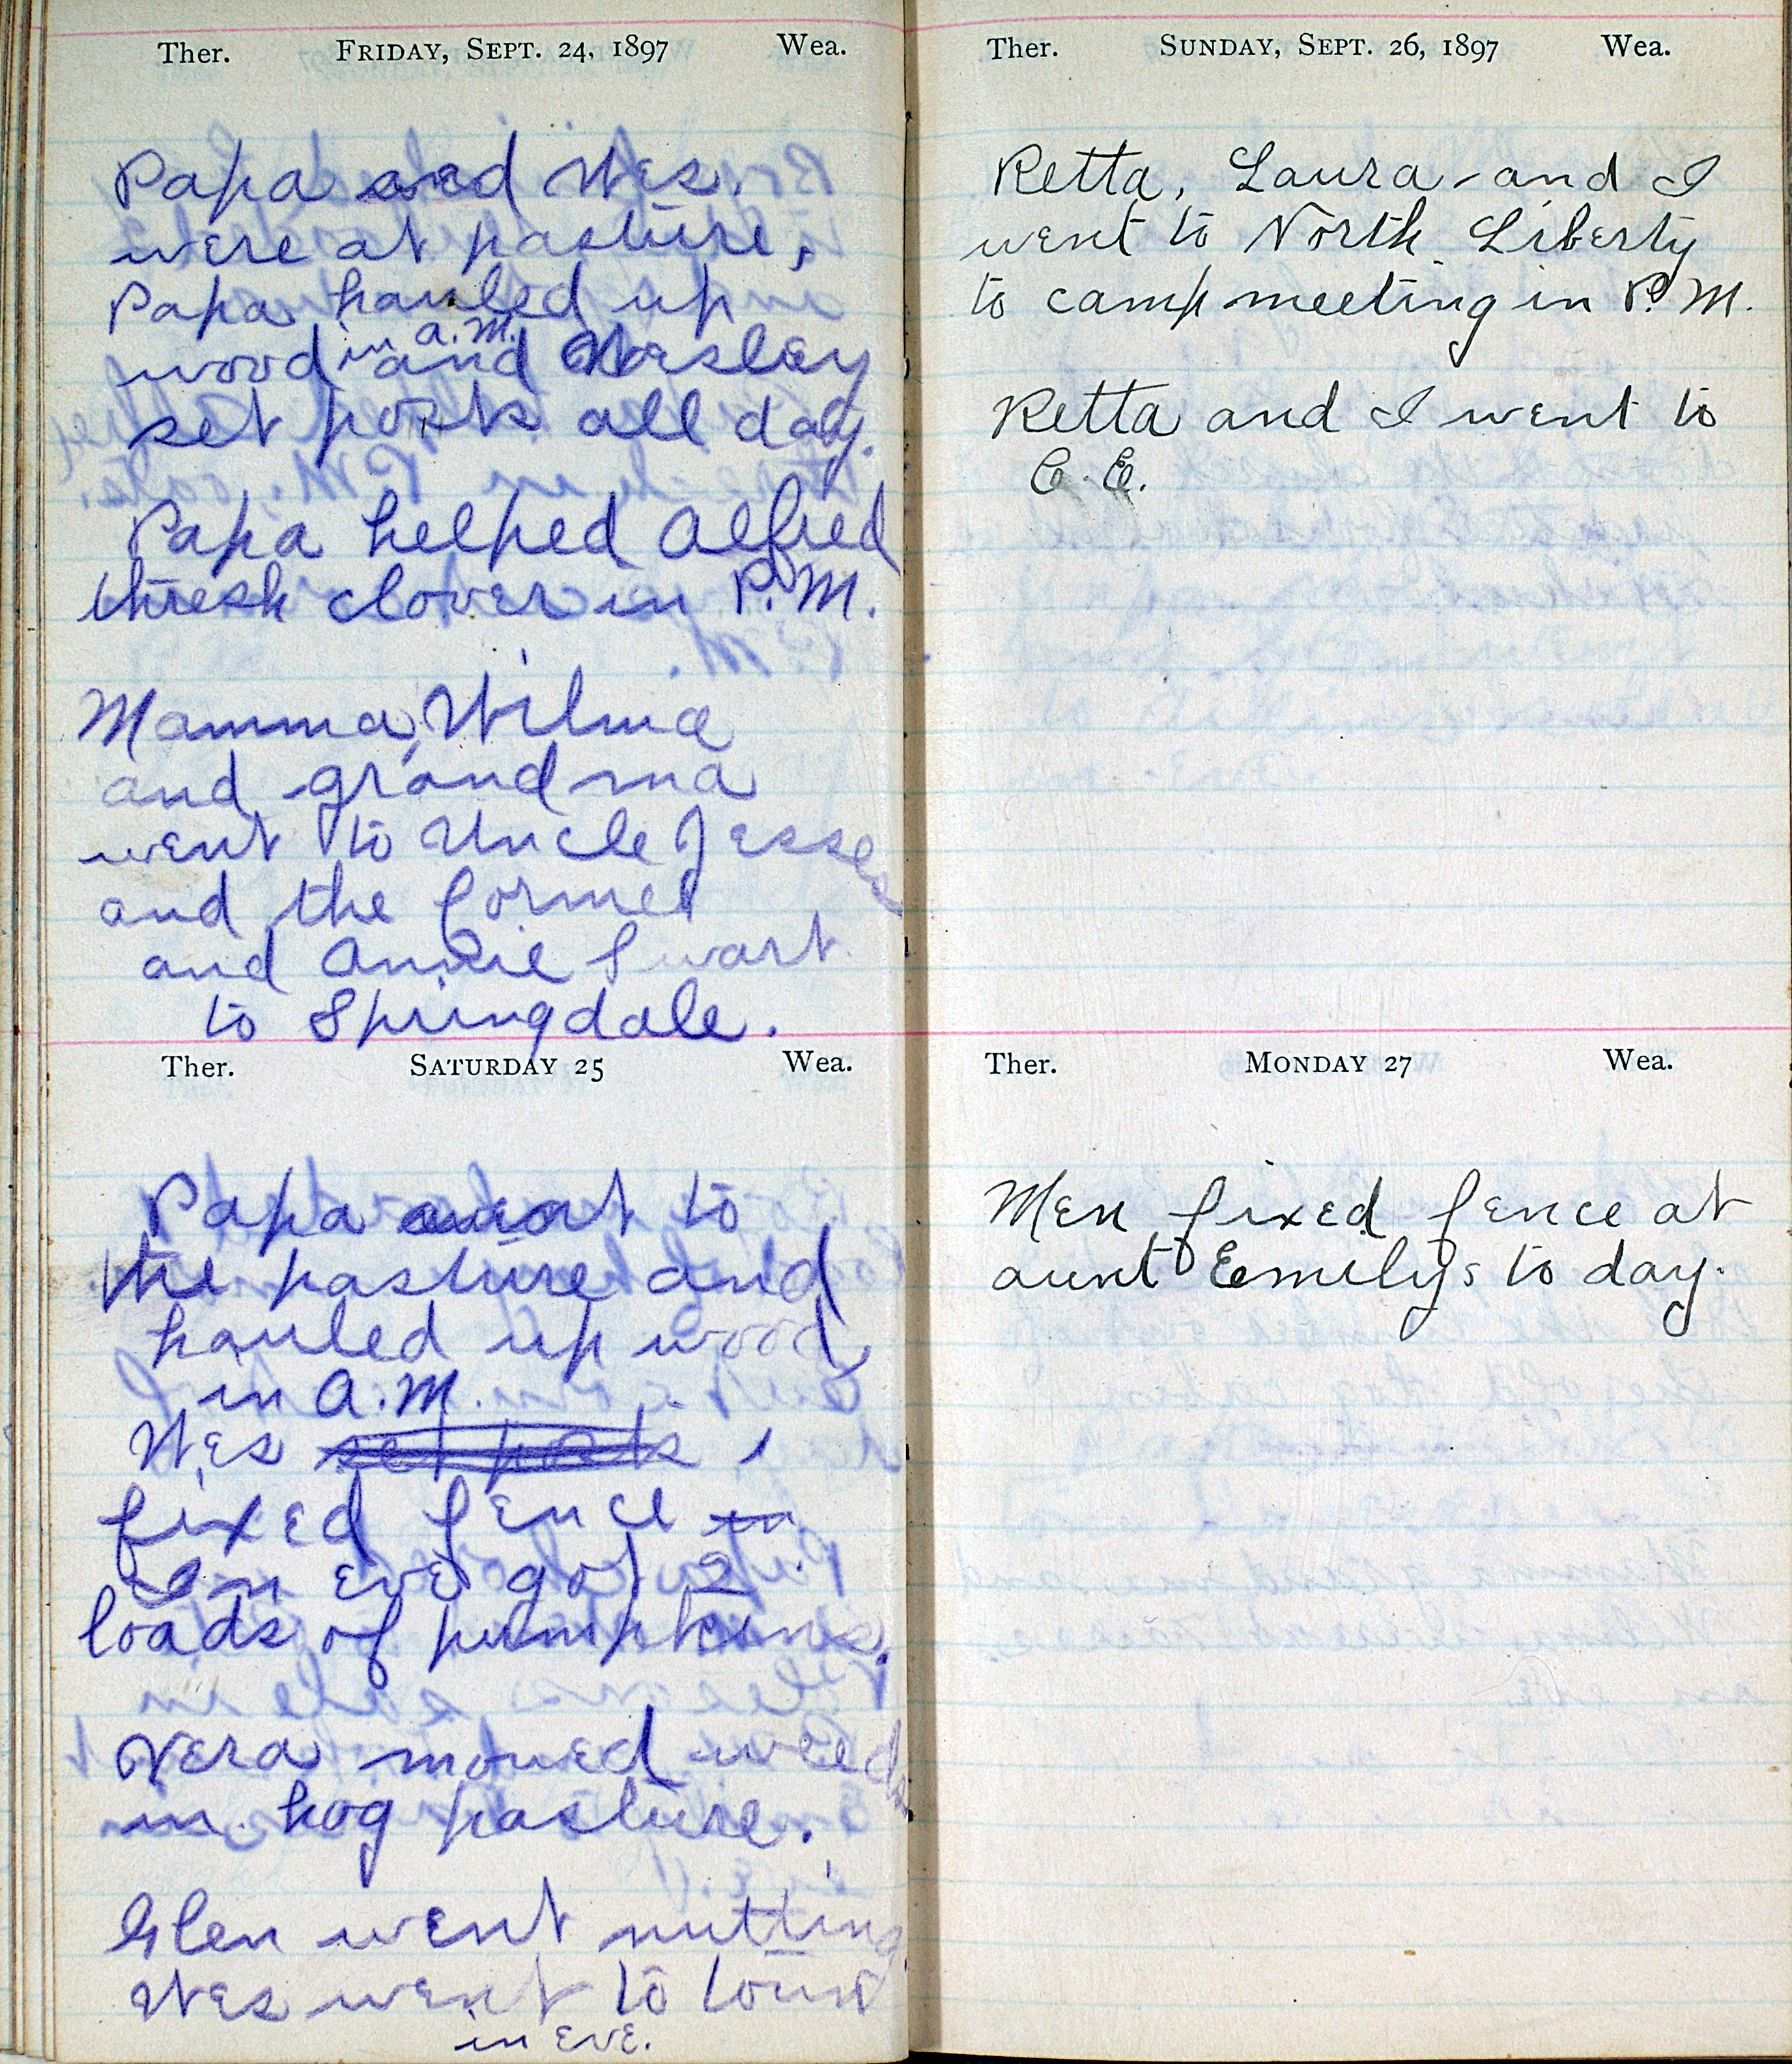 Ther. FRIDAY, SEPT. 24, 1897 Wea.
Papa and Wes.
were at pasture,
Papa hauled up
wood in A.M. and Wesley
set posts all day.
Papa helped Alfred
thresh clover in P.M.
Mamma, Wilma
and grandma
went to Uncle Jesses
and the former
and Annie Swart
to Springdale.
Ther. SATURDAY 25 Wea.
Papa went to
the pasture and
hauled up wood
in A.M.
Wes set posts
fixed fence in
In eve got 2
loads of pumpkins.
Vera mowed weeds
in hog pasture.
Glen went nutting
Wes went to town
in eve.
Ther. SUNDAY, SEPT. 26, 1897 Wea.
Retta, Laura and I
went to North Liberty
to camp meeting in P.M.
Retta and I went to
C. E.
Ther. MONDAY 27 Wea.
Men fixed fence at
aunt Emilys to day.